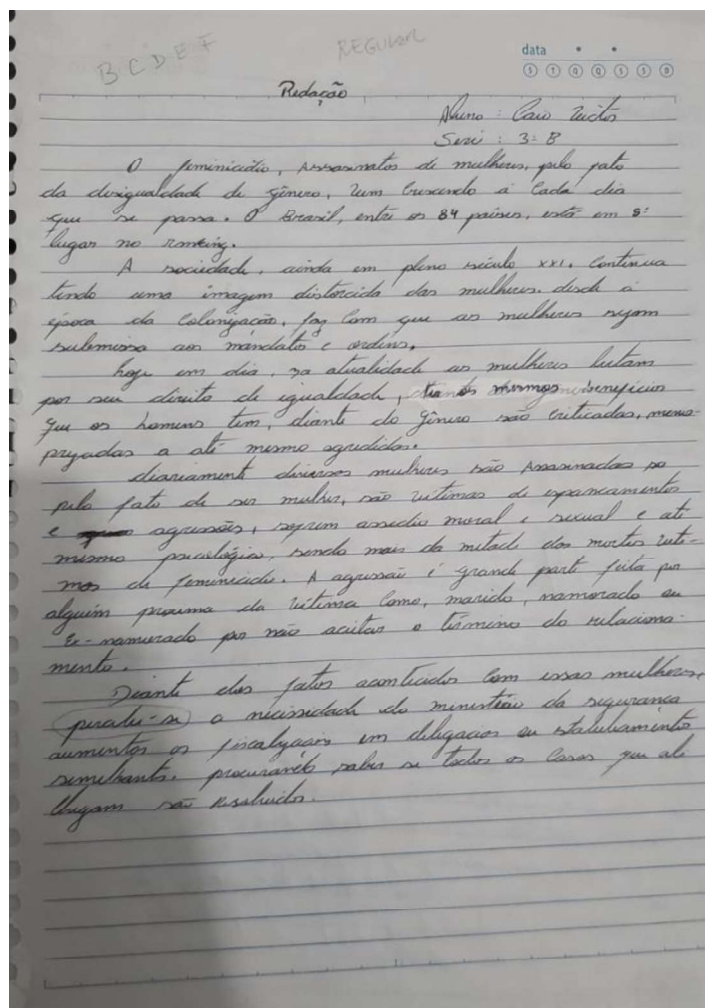 B C D E F
REGULAR
data
S T Q Q S S D
Redação
Aluno : Caio Victor
Seri : 3ª B
O feminicidio, Assasinatos de mulheres, pelo fato
da desigualdade de gênero, vem crescendo a cada dia
que se passa. O Brasil, entre os 84 países, está em 5º
lugar no ranking.
A sociedade, ainda em pleno século XXI, continua
tendo uma imagem distorcida das mulheres. desde a
época da colonização, faz com que as mulheres sejam
submissa aos mandatos e ordens.
hoje em dia, na atualidade as mulheres lutam
por seu direito de igualdade, mesmos beneficios
que os homens tem, diante do gênero são criticadas, menos-
prezadas a até mesmo agredidas.
diariamente diversas mulheres são Assasinadas so
pelo fato de ser mulher, são vitimas de espancamentos
e agressões, sofrem assedio moral e sexual e até
mesmo psicológico, sendo mais da metade das mortes viti-
mas de feminicidio. A agressão é grande parte feita por
alguém proxima da vitima como, marido, namorado ou
Ex-namorado por não aceitar o término do relaciona-
mento.
Diante dos fatos acontecidos com essas mulheres,
percebe-se a necissidade do ministério da segurança
aumentos as fiscalizações em delegacias ou estabelecimentos
semelhants. procurando saber se todos os casos que ali
chegam são resolvidos.